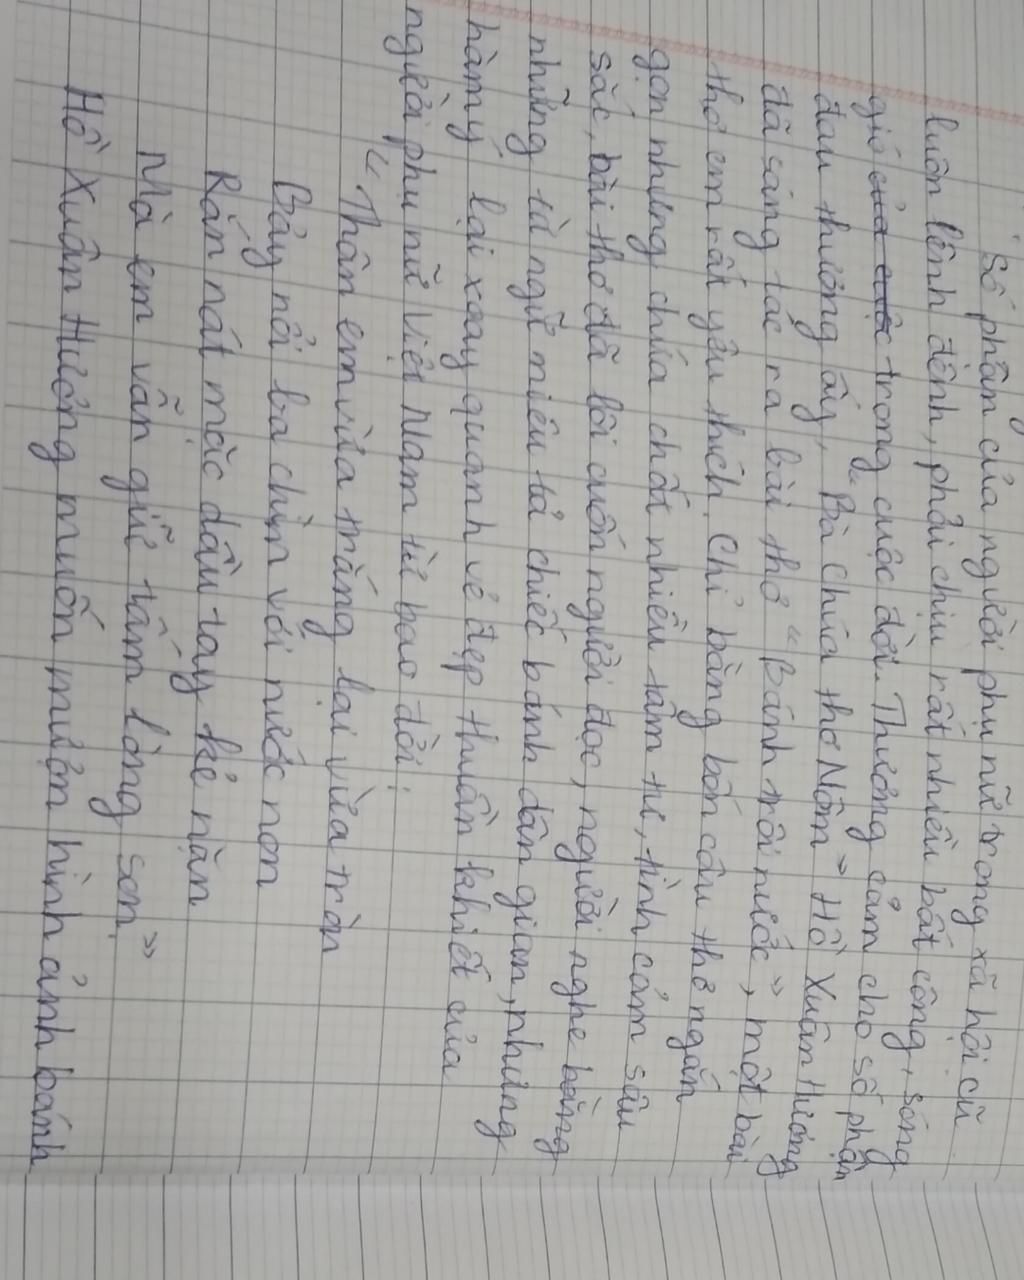 Số phận của người phụ nữ trong xã hội cũ
luôn lênh đênh, phải chịu rất nhiều bất công, sóng
gió của cuộc trong cuộc đời. Thương cảm cho số phận
đau thương ấy, "Bà chúa thơ Nôm" Hồ Xuân Hương
đã sáng tác ra bài thơ "Bánh trôi nước", một bài
thơ em rất yêu thích. Chỉ bằng bốn câu thơ ngắn
gọn nhưng chứa chất nhiều tâm tư, tình cảm sâu
sắc, bài thơ đã lôi cuốn người đọc, người nghe bằng
những từ ngữ miêu tả chiếc bánh dân gian, nhưng
hàm ý lại xoay quanh vẻ đẹp thuần khiết của
người phụ nữ Việt Nam từ bao đời:
"Thân em vừa trắng lại vừa tròn
Bảy nổi ba chìm với nước non
Rắn nát mặc dầu tay kẻ nặn
Mà em vẫn giữ tấm lòng son"
Hồ Xuân Hương muốn mượn hình ảnh bánh